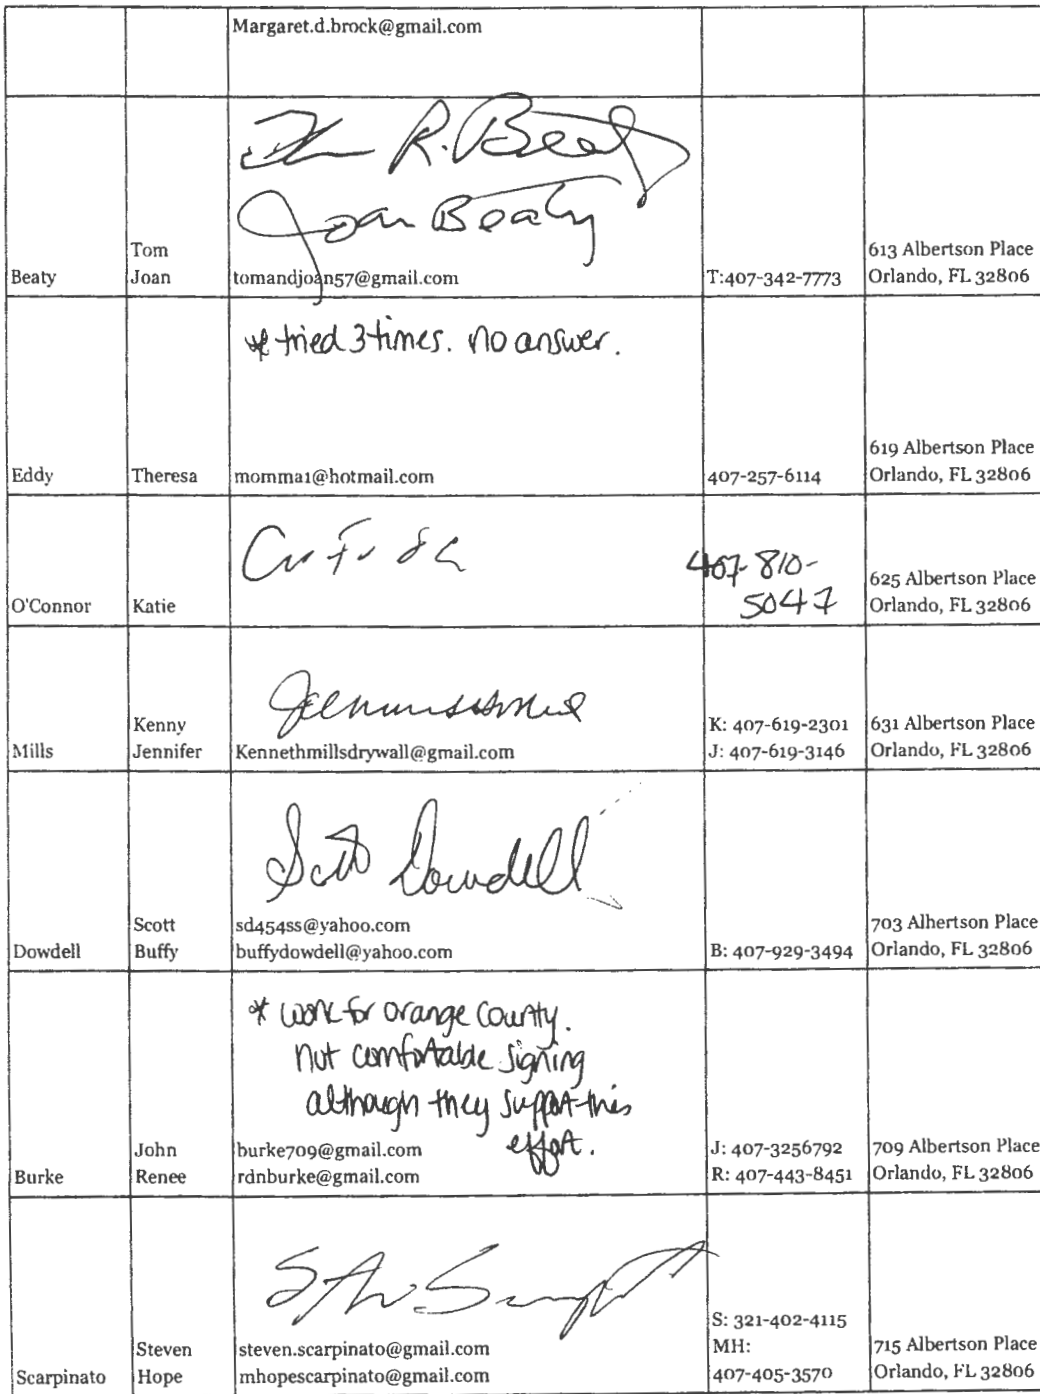 Margaret.d.brock@gmail.com
R. Beaty
Joan Beaty
Beaty
Tom
Joan
tomandjoan57@gmail.com
T:407-342-7773
613 Albertson Place
Orlando, FL 32806
* tried 3 times. no answer.
Eddy
Theresa
momma1@hotmail.com
407-257-6114
619 Albertson Place
Orlando, FL 32806
O'Connor
Katie
407-810-
5047
625 Albertson Place
Orlando, FL 32806
Mills
Kenny
Jennifer
Kennethmillsdrywall@gmail.com
K: 407-619-2301
J: 407-619-3146
631 Albertson Place
Orlando, FL 32806
Scott Dowdell
Dowdell
Scott
Buffy
sd454ss@yahoo.com
buffydowdell@yahoo.com
B: 407-929-3494
703 Albertson Place
Orlando, FL 32806
* work for orange county.
not comfortable signing
although they support this
effort.
Burke
John
Renee
burke709@gmail.com
rdnburke@gmail.com
J: 407-3256792
R: 407-443-8451
709 Albertson Place
Orlando, FL 32806
Scarpinato
Steven
Hope
steven.scarpinato@gmail.com
mhopescarpinato@gmail.com
S: 321-402-4115
MH:
407-405-3570
715 Albertson Place
Orlando, FL 32806